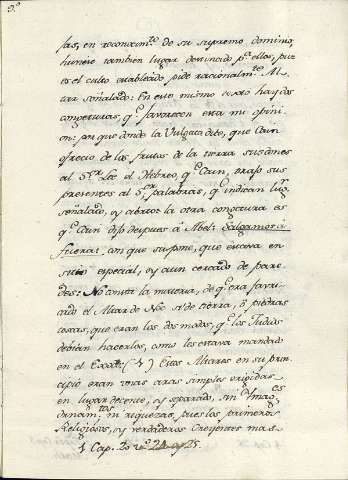 sas, en reconocim.to de su supremo dominio,
huviese tambien lugar destinado p.a ellas, pues
es el culto establecido pide racionalm.te Al-
tar señalado: En este mismo texto hay dos
congeturas, q.e favorecen esta mi opini-
on: por que donde la Vulgata dice, que Cain
ofrecio de los frutos de la tierra sus dones
al S.or lee el Hebreo, q.e Cain, trajo sus
presentes al S.or, palabras, q.e indican lug.r
señalado, y abierto la otra congetura es
q.e Cain dijo despues á Abel: Salgamos á
fuera: con que supone, que estava en
sitio especial, y aun cercado de pare-
des: No consta la materia, de q.e era favri-
cado el Altar de Noe si de tierra, ò piedras
toscas, que eran los dos modos, q.e los Judios
debian hacerlos, como les estava mandado
en el Exodo: (1) Estos Altares en su prin-
cipio eran unas aras simples erigidas
en lugar decente, y separado, sin Ymag.es
ni riquezas, pues los primeros
Religiosos, y verdaderos Creyentes mas
1 Cap. 20 v.o 24 y 25.